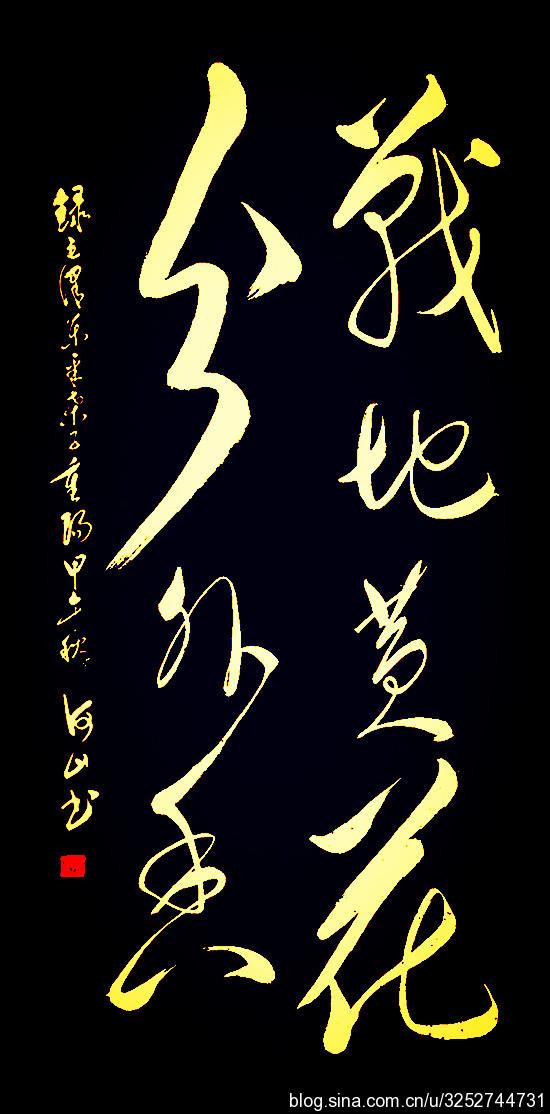 戰地黄花
分外香
録毛澤東采桑子重陽甲午秋河山书
blog.sina.com.cn/u/3252744731